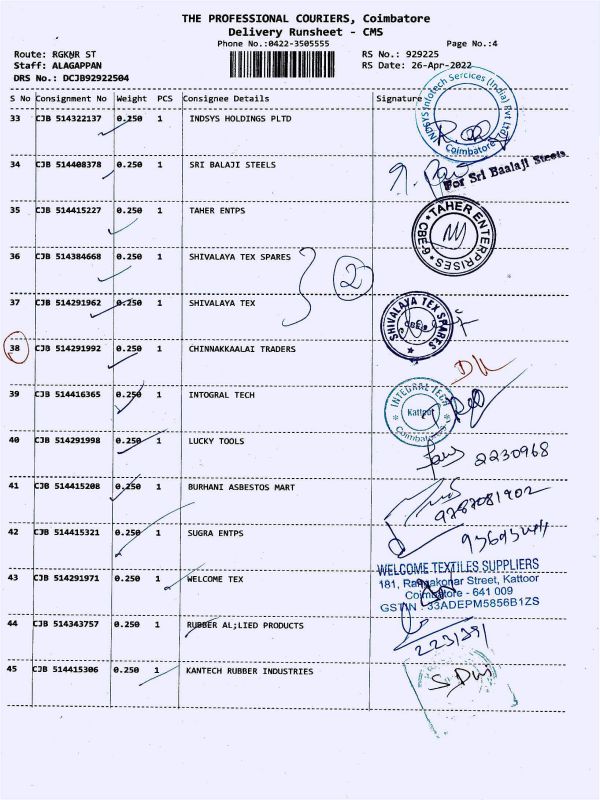 THE PROFESSIONAL COURIERS, Coimbatore
Delivery Runsheet - CMS
Phone No.:0422-3505555 Page No.:4
Route: RGKNR ST RS No.: 929225
Staff: ALAGAPPAN RS Date: 26-Apr-2022
DRS No.: DCJB92922504
S No Consignment No Weight PCS Consignee Details Signature
33 CJB 514322137 0.250 1 INDSYS HOLDINGS PLTD
INDSYS Infotech Sercices (India) Pvt Ltd
Coimbatore
34 CJB 514408378 0.250 1 SRI BALAJI STEELS
For Sri Baalaji Steels
35 CJB 514415227 0.250 1 TAHER ENTPS
TAHER ENTERPRISES
CBE-6
36 CJB 514384668 0.250 1 SHIVALAYA TEX SPARES
2
37 CJB 514291962 0.250 1 SHIVALAYA TEX
SHIVALAYA TEX SPARES
38 CJB 514291992 0.250 1 CHINNAKKAALAI TRADERS
39 CJB 514416365 0.250 1 INTOGRAL TECH
INTEGRAL TECH
Kattoor
Coimbatore
40 CJB 514291998 0.250 1 LUCKY TOOLS
2230968
41 CJB 514415208 0.250 1 BURHANI ASBESTOS MART
9787081902
42 CJB 514415321 0.250 1 SUGRA ENTPS
43 CJB 514291971 0.250 1 WELCOME TEX
WELCOME TEXTILES SUPPLIERS
181, Ramakonar Street, Kattoor
Coimbatore - 641 009
GSTIN : 33ADEPM5856B1ZS
44 CJB 514343757 0.250 1 RUBBER AL;LIED PRODUCTS
45 CJB 514415306 0.250 1 KANTECH RUBBER INDUSTRIES